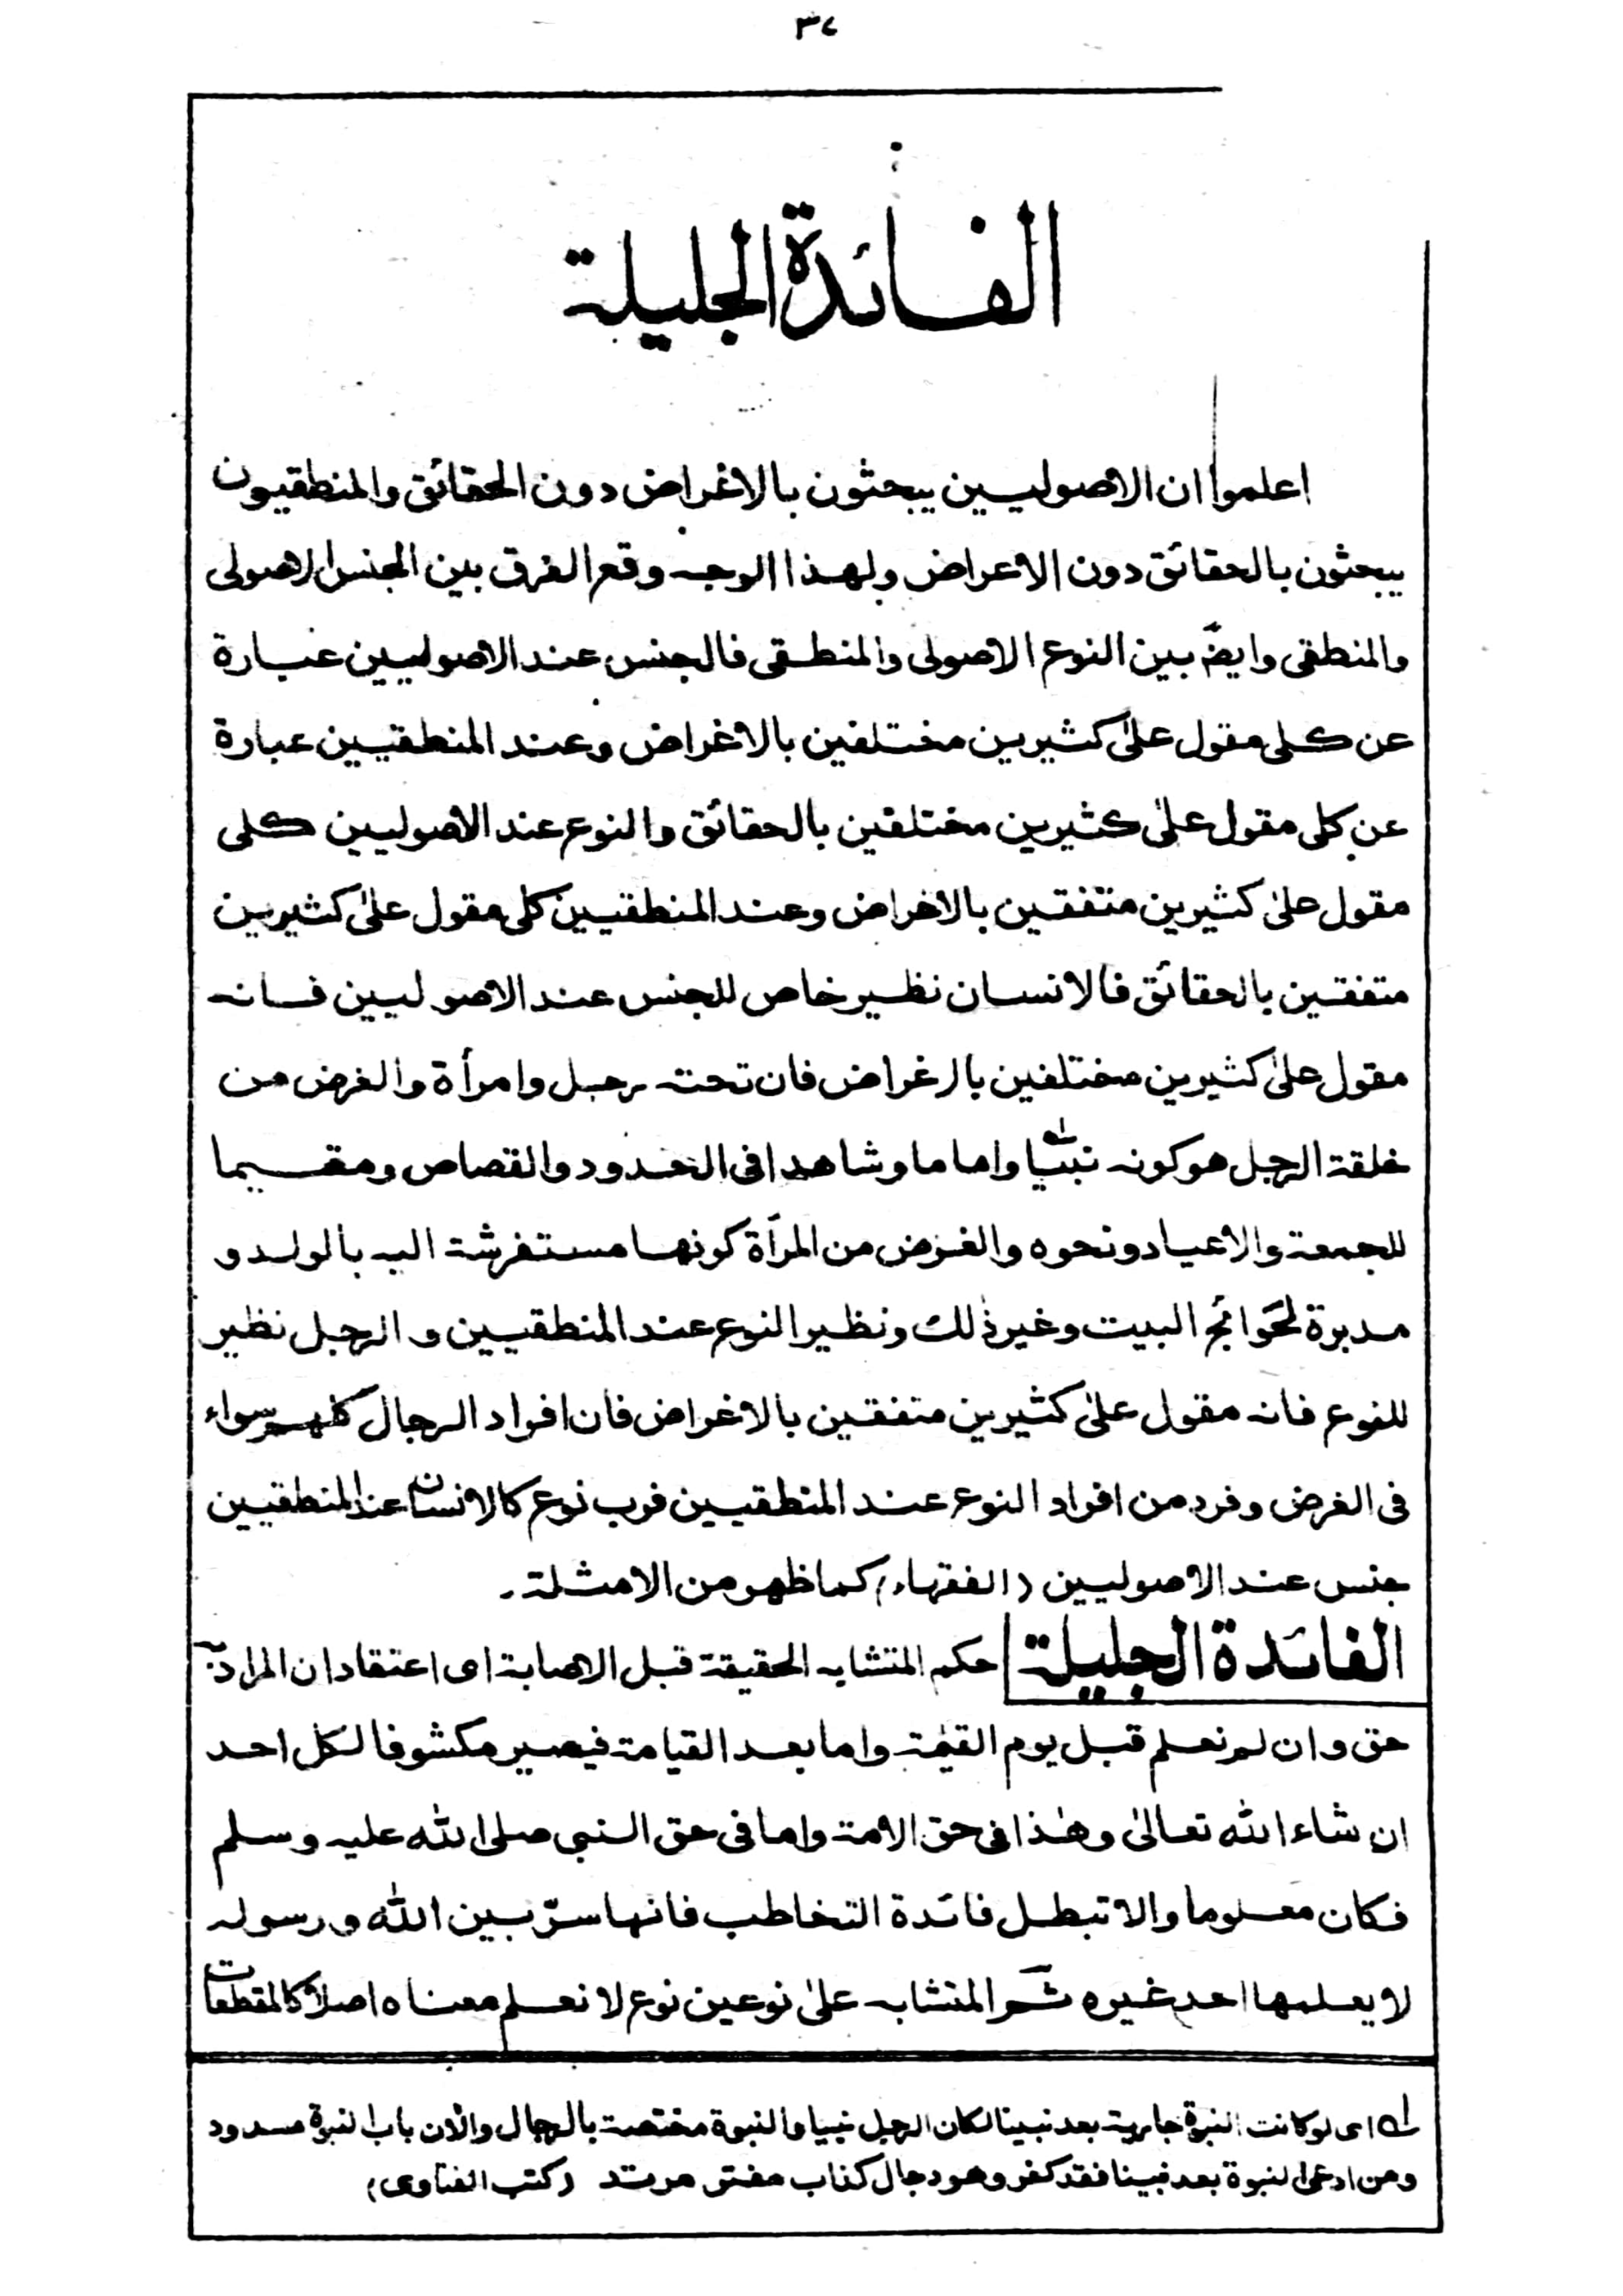 ٣٧
الفائدة الجليلة
اعلموا ان الاصوليين يبحثون بالاغراض دون الحقائق والمنطقيون
يبحثون بالحقائق دون الاعراض ولهذا الوجه وقع الفرق بين الجنس الاصولى
والمنطقى وايضً بين النوع الاصولى والمنطقى فالجنس عند الاصوليين عبارة
عن كلى مقول علىٰ كثيرين مختلفين بالاغراض وعند المنطقيين عبارة
عن كلى مقول علىٰ كثيرين مختلفين بالحقائق والنوع عند الاصوليين كلى
مقول علىٰ كثيرين متفقين بالاغراض وعند المنطقيين كلى مقول علىٰ كثيرين
متفقين بالحقائق فالانسان نظير خاص للجنس عند الاصوليين فانه
مقول علىٰ كثيرين مختلفين بالاغراض فان تحته رجل وامرأة والغرض من
خلقة الرجل هو كونه نبيّا له واماما وشاهدا فى الحدود والقصاص ومقيما
للجمعة والاعياد ونحوه والغرض من المرأة كونها مستفرشة اليه بالولد و
مدبرة لحوائج البيت وغير ذٰلك ونظير النوع عند المنطقيين و الرجل نظير
للنوع فانه مقول علىٰ كثيرين متفقين بالاغراض فان افراد الرجال كلهم سواء
فى الغرض وفرد من افراد النوع عند المنطقيين فرب نوع كالانسان عند المنطقيين
جنس عند الاصوليين (الفقهاء) كما ظهر من الامثلة۔
الفائدة الجليلة حكم المتشابه الحقيقة قبل الاصابة اى اعتقاد ان المراد به
حق وان لم نعلم قبل يوم القيٰمة واما بعد القيامة فيصير مكشوفا لكل احد
ان شاء الله تعالىٰ وهٰذا فى حق الامة واما فى حق النبى صلى الله عليه وسلم
فكان معلوما والا تبطل فائدة التخاطب فانها سرّ بين الله ورسوله
لا يعلمها احد غيره ثم المتشابه علىٰ نوعين نوع لا نعلم معناه اصلا كالمقطعات
له اى لو كانت النبوة جارية بعد نبينا لكان الرجل نبيا والنبوة مختصة بالرجال والأن باب النبوة مسدود
ومن ادعى النبوة بعد نبينا فقد كفر وهو دجال كذاب مفتر مرتد (كتب الفتاوى)